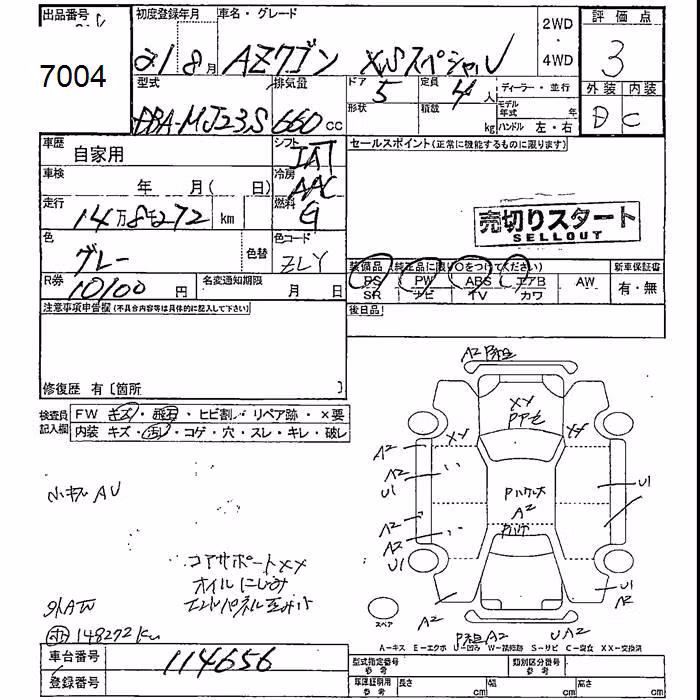 出品番号
7004
初度登録年月 車名・グレード
21 8月 AZワゴン XSスペシャル
2WD
・
4WD
評価点
3
外装 内装
D C
型式 排気量 ドア 定員 ディーラー・並行
DBA-MJ23S 660cc 5 4人
形状 積載 kg モデル年式 年
ハンドル 左・右
車歴 自家用
シフト IAT
車検 年 月( 日)
冷房 AAC
走行 14万8千272 km
燃料 G
色 グレー 色替
色コード ZLY
R券 10100円
名変通知期限 月 日
セールスポイント(正常に機能するものに限ります)
売切りスタート
SELLOUT
装備品 (純正品に限り○をつけてください) 新車保証書
PS PW ABS エアB AW 有・無
SR ナビ TV カワ
後日品
注意事項申告欄(不具合内容等は具体的に記入して下さい)
修復歴 有〔箇所 〕
検査員記入欄
FW キズ・飛石・ヒビ割・リペア跡・×要
内装 キズ・汚れ・コゲ・穴・スレ・キレ・破レ
小キズ AU
コアサポートXX
オイルにじみ
148272km
A2
XX
XX
A2
A2
U1
A2
A2
A2
U1
U1
U1
A2
A2
スペア
A2
UA2
A-キズ E-エクボ U-凹み W-補修跡 S-サビ C-腐食 XX-交換済
車台番号 114656
登録番号
型式指定番号 参考 類別区分番号 参考
車庫証明用 参考 長さ cm 幅 cm 高さ cm